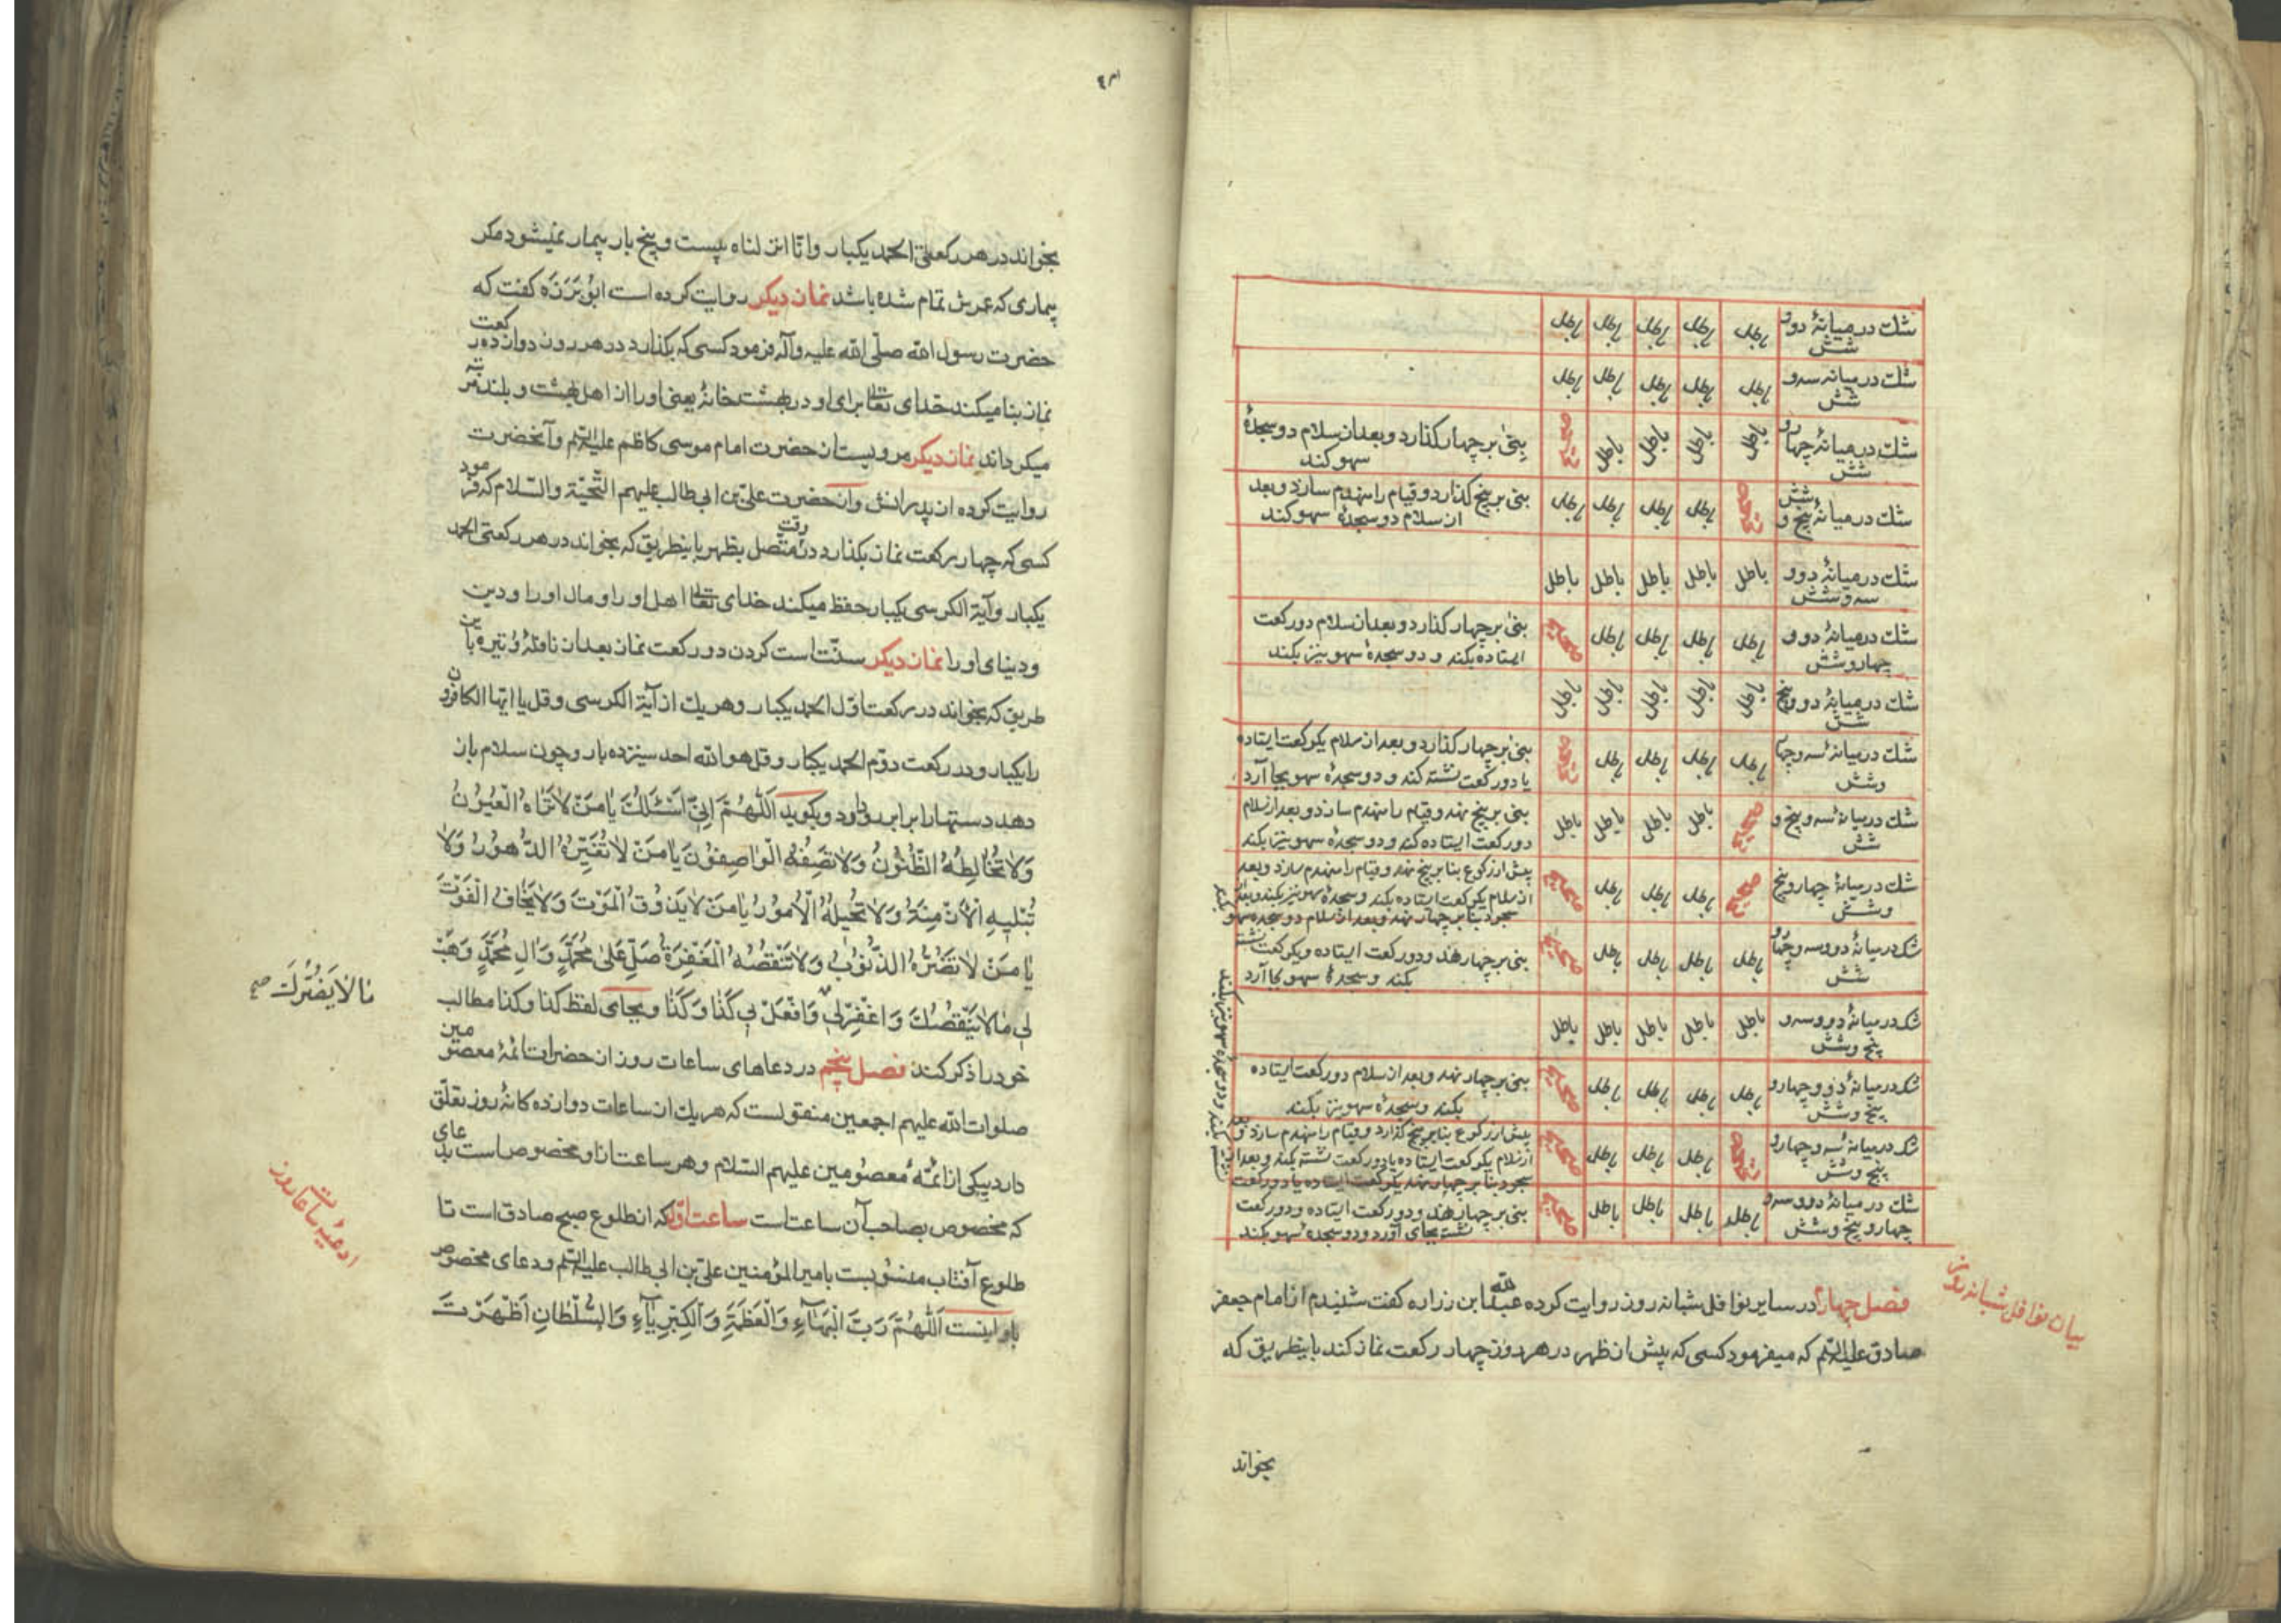 شك در میانهٔ دو و شش باطل باطل باطل باطل باطل
شك در میانه سه و شش باطل باطل باطل باطل باطل
شك در میانهٔ چهار و شش باطل باطل باطل باطل صحیح بنی بر چهار کذارد و بعد از سلام دو سجدهٔ سهو کند
شك در میانهٔ پنج و شش صحیح باطل باطل باطل باطل بنی بر پنج کذارد و قیام را منهدم سازد و بعد از سلام دو سجدهٔ سهو کند
شك در میانهٔ دو و سه و شش باطل باطل باطل باطل باطل
شك در میانهٔ دو و چهار و شش باطل باطل باطل باطل صحیح بنی بر چهار کذارد و بعد از سلام دو رکعت ایستاده بکند و دو سجدهٔ سهو نیز بکند
شك در میانهٔ دو و پنج شش باطل باطل باطل باطل باطل
شك در میانهٔ سه و چهار وشش باطل باطل باطل باطل صحیح بنی بر چهار کذارد و بعد از سلام یکرکعت ایستاده یا دو رکعت نشسته کند و دو سجدهٔ سهو بجا آرد
شك در میانهٔ سه و پنج و شش صحیح باطل باطل باطل باطل بنی بر پنج نهد و قیام را منهدم سازد و بعد از سلام دو رکعت ایستاده کند و دو سجدهٔ سهو نیز بکند
شك در میانهٔ چهار و پنج وشش صحیح باطل باطل باطل صحیح پیش از رکوع بنا بر پنج نهد و قیام را منهدم سازد و بعد از سلام یکرکعت ایستاده بکند و سجدهٔ سهو نیز بکند و بعد سجود بنا بر چهار نهد و بعد از سلام دو سجده سهو بکند
شك در میانهٔ دو و سه و چهار و شش باطل باطل باطل باطل صحیح بنی بر چهار نهد و دو رکعت ایستاده و یکرکعت نشسته بکند و سجدهٔ سهو بجا آرد
شك در میانهٔ دو و سه و پنج و شش باطل باطل باطل باطل باطل
شك در میانهٔ دو و چهار و پنج وشش باطل باطل باطل باطل صحیح بنی بر چهار نهد و بعد از سلام دو رکعت ایستاده بکند و سجدهٔ سهو نیز بکند
شك در میانهٔ سه و چهار و پنج وشش صحیح باطل باطل باطل صحیح پیش از رکوع بنا بر پنج کذارد و قیام را منهدم سازد و بعد از سلام یکرکعت ایستاده یا دو رکعت نشسته بکند و بعد از سجود بنا بر چهار نهد یکرکعت ایستاده یا دو رکعت
نشسته بکند و دو سجدهٔ سهو نیز بکند
شك در میانهٔ دو و سه و چهار و پنج وشش باطل باطل باطل باطل صحیح بنی بر چهار نهد و دو رکعت ایستاده و دو رکعت نشسته بجای آورد و دو سجدهٔ سهو بکند
بیان نوافل شبانه روز
فصل چهارم در سایر نوافل شبانه روز روایت کرده عبدالله ابن زراره کفت شنیدم از امام جعفر
صادق علیه السّلم که میفرمود کسی که پیش از ظهر در هر روز چهار رکعت نماز کند باینطریق که
بخواند
بخواند در هر رکعتی الحمد یکبار و انّا انزلناه بیست و پنج بار بیمار نمیشود مکر
بیماری که عمرش تمام شده باشد نماز دیکر روایت کرده است ابو برزه کفت که
حضرت رسول الله صلّی الله علیه وآله فرمود کسی که بکذارد در هر روز دوازده رکعت
نماز بنا میکند خدای تعالی برای او در بهشت خانهٔ یعنی او را از اهل بهشت و بلند مرتبه
میکرداند نماز دیکر مرویست از حضرت امام موسی کاظم علیه السّلم و آنحضرت
روایت کرده از پدرانش و از حضرت علیّ بن ابی طالب علیهم التّحیّة والسّلام که فرمود
کسی که چهار رکعت نماز بکذارد در وقت متّصل بظهر باینطریق که بخواند در هر رکعتی الحمد
یکبار و آیة الکرسی یکبار حفظ میکند خدای تعالی اهل او را و مال او را و دین
و دنیای او را نماز دیکر سنّت است کردن دو رکعت نماز بعد از نافلهٔ وتیره باین
طریق که بخواند در رکعت اوّل الحمد یکبار و هر یك از آیة الکرسی و قل یا ایّها الکافرون
را یکبار و در رکعت دوّم الحمد یکبار و قل هو الله احد سیزده بار و چون سلام باز
دهد دستها را برابر رو دارد و بکوید اَللّٰهُمَّ اِنّی اَسْئَلُكَ یَا مَنْ لَا تَرَاهُ الْعُیُونُ
وَلَا تُخَالِطُهُ الظُّنُونُ وَلَا تَصِفُهُ الْوَاصِفُونَ یَا مَنْ لَا تُغَیِّرُهُ الدُّهُورُ وَلَا
تُبْلِیهِ الْاَزْمِنَةُ وَلَا تُحِیلُهُ الْاُمُورُ یَا مَنْ لَا یَذُوقُ الْمَوْتَ وَلَا یَخَافُ الْفَوْتَ
یَا مَنْ لَا تَضُرُّهُ الذُّنُوبُ وَلَا تَنْقُصُهُ الْمَغْفِرَةُ صَلِّ عَلٰی مُحَمَّدٍ وَآلِ مُحَمَّدٍ وَهَبْ
لِی مَا لَا یَنْقُصُكَ وَاغْفِرْ لِی وَافْعَلْ بِی کَذَا وَکَذَا و بجای لفظ کذا و کذا مطالب
مَا لَا یَضُرُّكَ صح
خود را ذکر کند فصل پنجم در دعاهای ساعات روز از حضرات ائمّهٔ معصومین
صلوات الله علیهم اجمعین منقولست که هر یك از ساعات دوازده کانهٔ روز تعلّق
دارد بیکی از ائمّهٔ معصومین علیهم السّلام و هر ساعت از او مخصوص است بدعای
ادعیهٔ ساعات روز
که مخصوص بصاحب آن ساعتست ساعت اوّل که از طلوع صبح صادق است تا
طلوع آفتاب منسوبست بامیر المؤمنین علیّ بن ابی طالب علیه السّلم و دعای مخصوص
باو اینست اَللّٰهُمَّ رَبَّ الْبَهَآءِ وَالْعَظَمَةِ وَالْکِبْرِیَآءِ وَالسُّلْطَانِ اَظْهَرْتَ